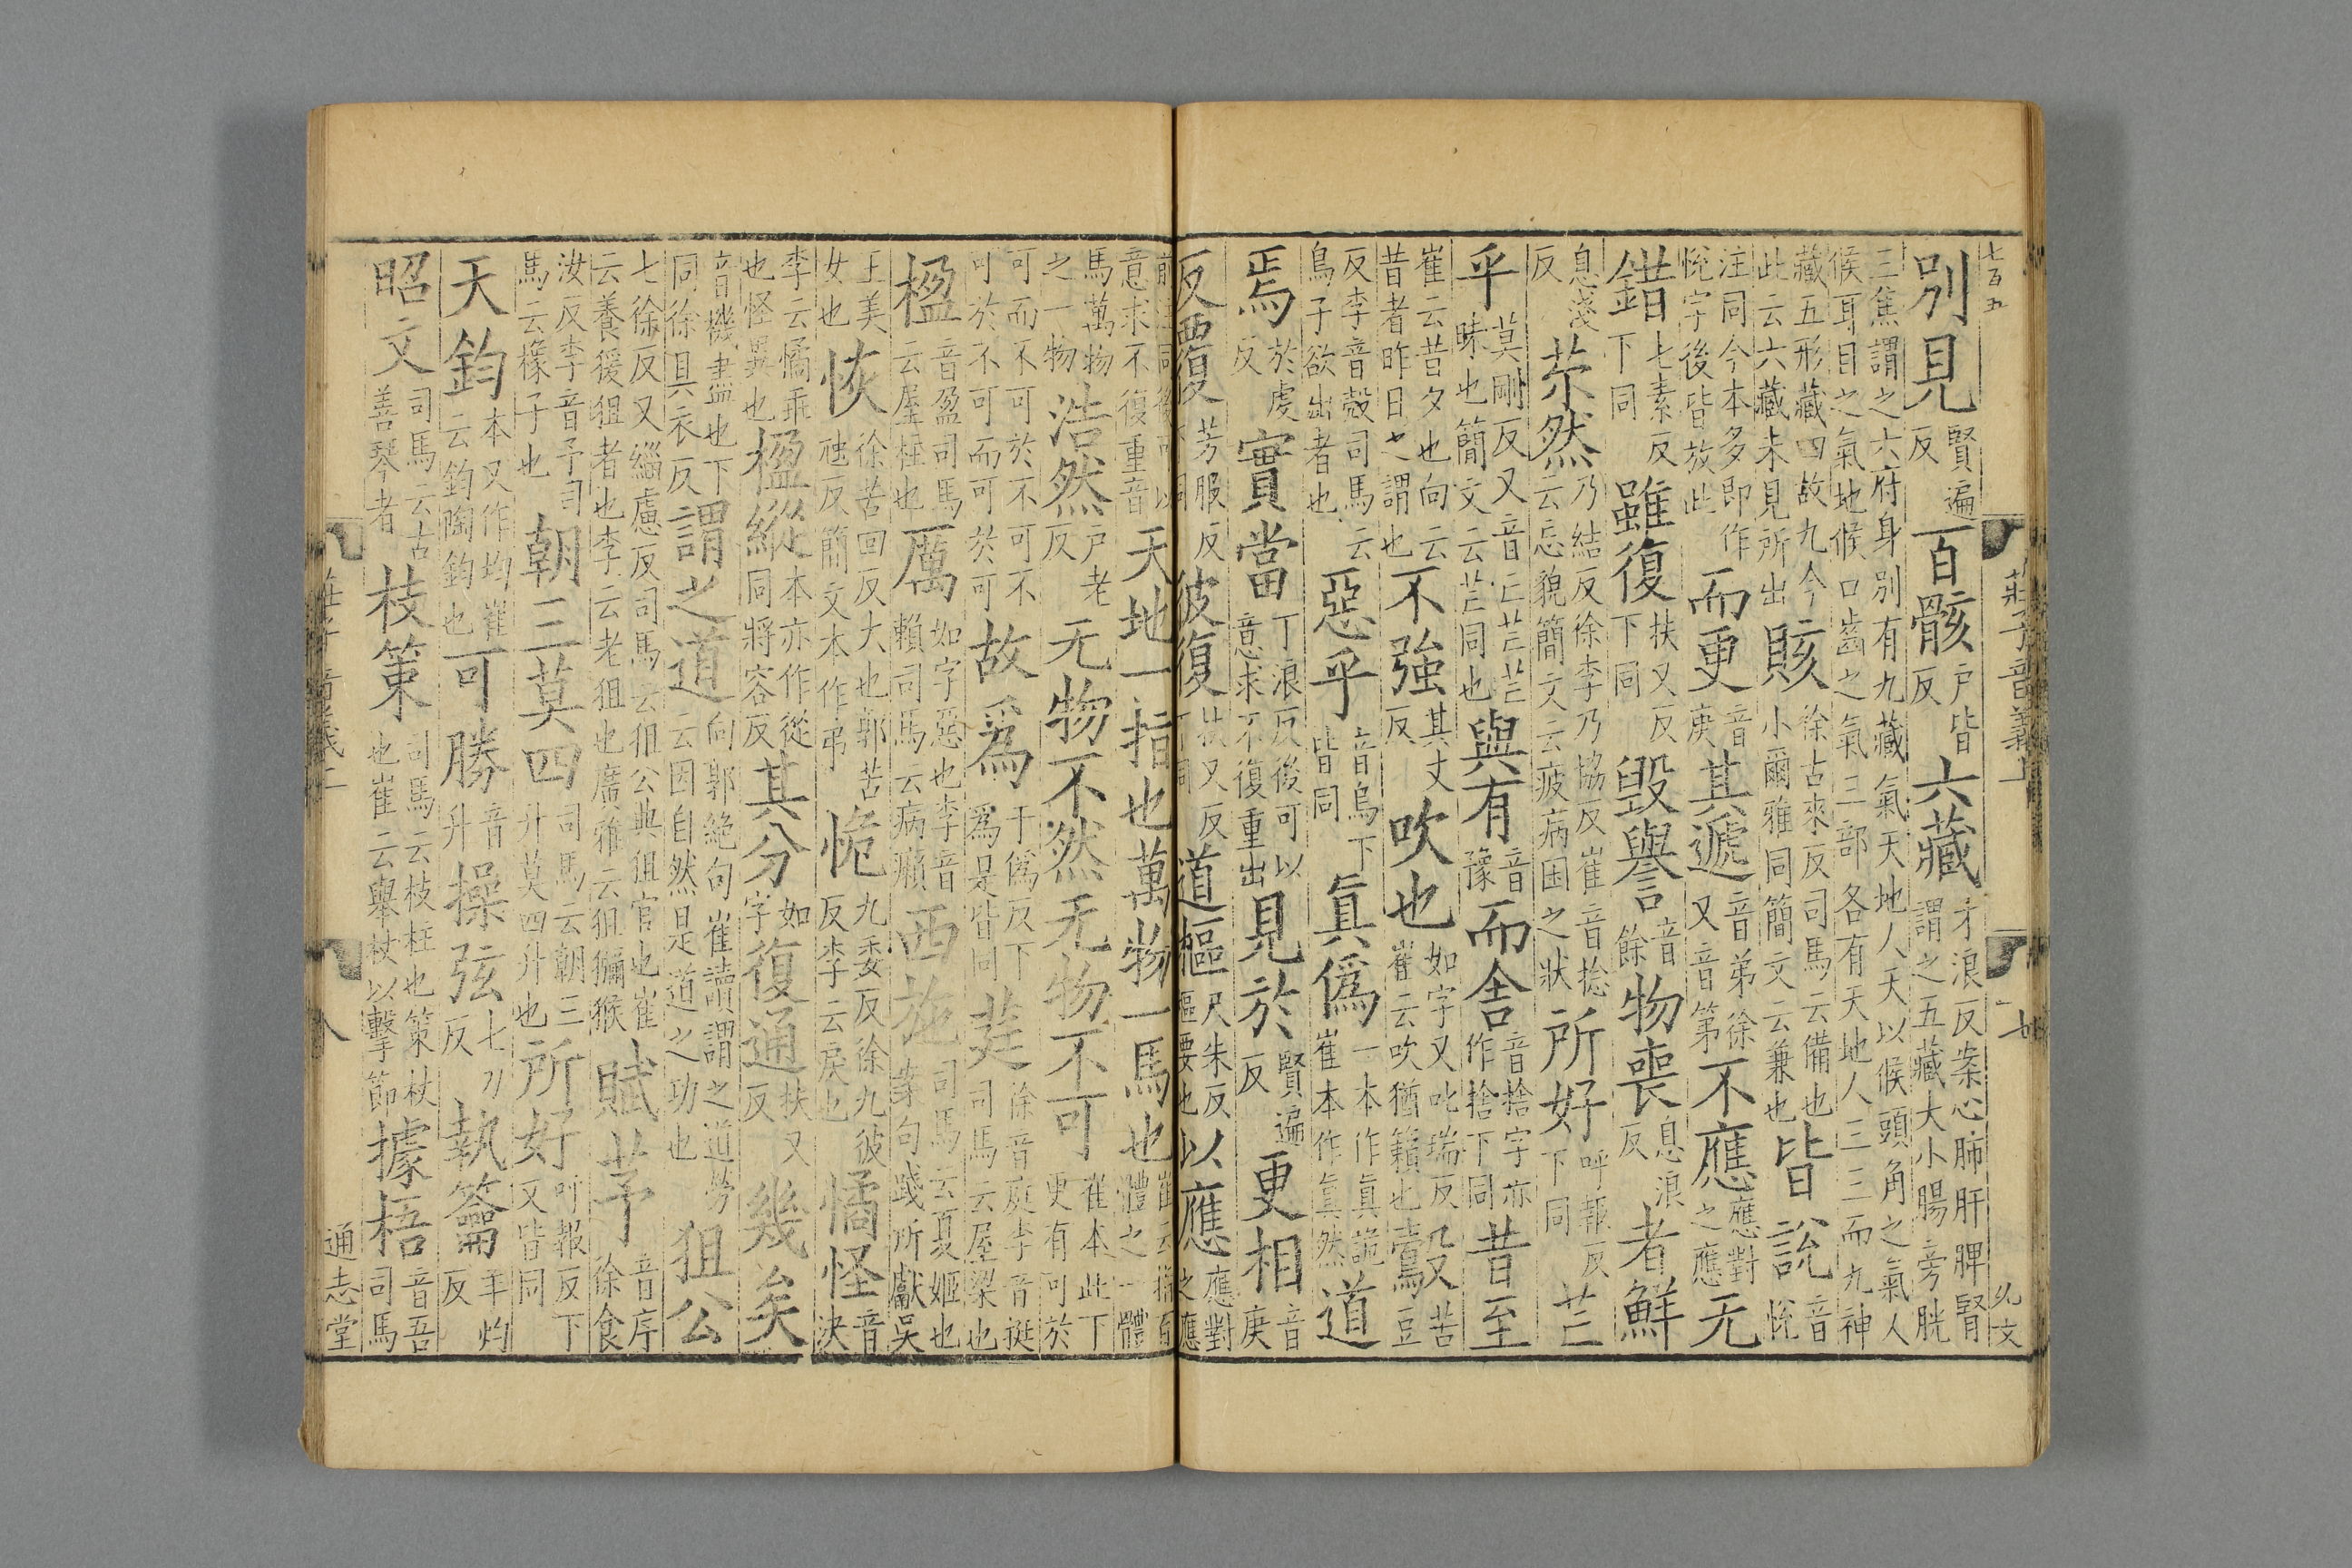 七百五
莊子音義上
七
九文
別見賢遍反百骸戶皆反六藏才浪反案心肺肝脾腎謂之五藏大小腸旁胱
三焦謂之六府身別有九藏氣天地人天以候頭角之氣人候耳目之氣地候口齒之氣三部各有天地人三三而九神
藏五形藏四故九今此云六藏未見所出賅徐古來反司馬云備也小爾雅同簡文云兼也皆說音悅
注同今本多即作悅字後皆放此而更音庚其遞音弟徐又音第不應應對之應无
錯七素反下同雖復扶又反下同毀譽音餘物喪息浪反者鮮
息淺反苶然乃結反徐李乃協反崔音捻云忘貌簡文云疲病困之狀所好呼報反下同芒
乎莫剛反又音亡芒芒昧也簡文云芒同也與有音豫而舍音捨字亦作捨下同昔至
崔云昔夕也向云昔者昨日之謂也不強其丈反吹也如字又叱瑞反崔云吹猶籟也鷇苦豆
反李音殼司馬云鳥子欲出者也惡乎音烏下皆同真偽一本作真詭崔本作真然道
焉於虔反實當丁浪反後可以意求不復重出見於賢遍反更相音庚
反覆芳服反下同彼復扶又反下同道樞尺朱反樞要也以應應對之應
前注同後可以意求不復重音天地一指也萬物一馬也崔云指百體之一體
馬萬物之一物浩然戶老反无物不然无物不可崔本此下更有可於
可而不可於不可不可於不可可而可於可故為于偽反下為是皆同莛徐音庭李音挺司馬云屋梁也
楹音盈司馬云屋柱也厲如字惡也李音賴司馬云病癩西施司馬云夏姬也案句踐所獻吳
王美女也恢徐苦回反大也郭苦虺反簡文本作弔恑九委反徐九彼反李云戾也憰怪音決
李云憰乖也怪異也楹縱本亦作從同將容反其分如字復通扶又反幾矣
音機盡也下同徐具衣反謂之道向郭絕句崔讀謂之道勞云因自然是道之功也狙公
七徐反又緇慮反司馬云狙公典狙官也崔云養猨狙者也李云老狙也廣雅云狙獼猴賦芧音序徐食
汝反李音予司馬云橡子也朝三莫四司馬云朝三升莫四升也所好呼報反下文皆同
天鈞本又作均崔云鈞陶鈞也可勝音升操弦七刀反執籥羊灼反
昭文司馬云古善琴者枝策司馬云枝柱也策杖也崔云舉杖以擊節據梧音吾司馬
莊子音義上
八
通志堂